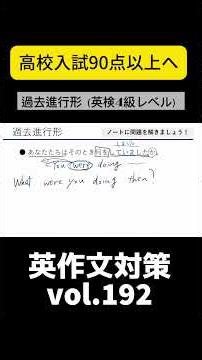 高校入試90点以上へ
過去進行形 (英検4級レベル)
過去進行形
ノートに問題を解きましょう！
● あなたたちはそのとき何をしていましたか
You were doing
What were you doing then?
英作文対策
vol.192